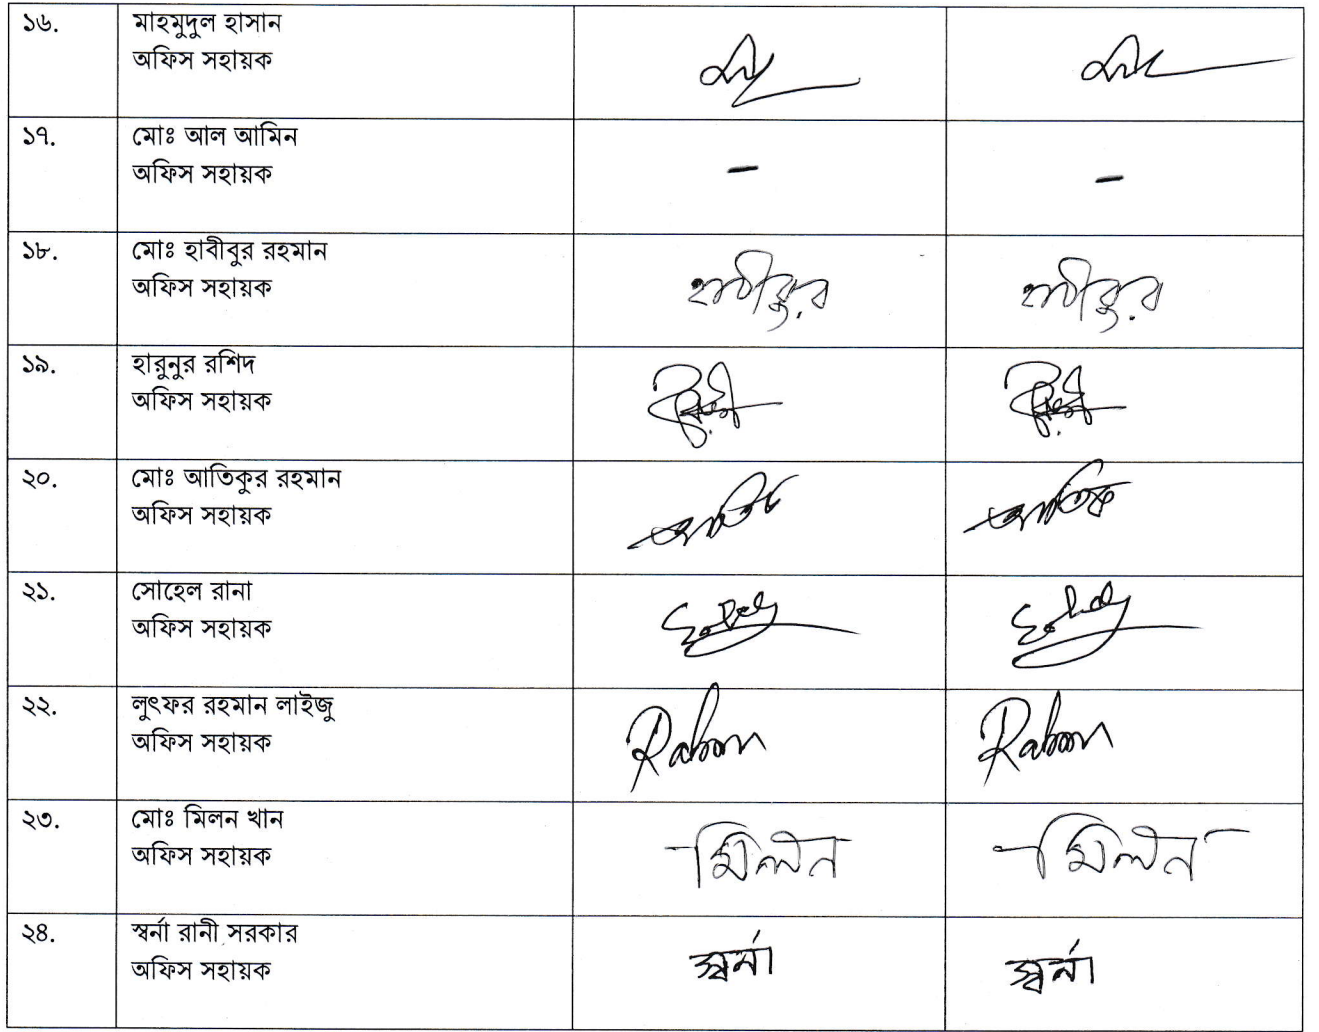 ১৬. মাহমুদুল হাসান
অফিস সহায়ক
১৭. মোঃ আল আমিন
অফিস সহায়ক
– –
১৮. মোঃ হাবীবুর রহমান
অফিস সহায়ক
হাবীবুর হাবীবুর
১৯. হারুনুর রশিদ
অফিস সহায়ক
২০. মোঃ আতিকুর রহমান
অফিস সহায়ক
২১. সোহেল রানা
অফিস সহায়ক
২২. লুৎফর রহমান লাইজু
অফিস সহায়ক
২৩. মোঃ মিলন খান
অফিস সহায়ক
মিলন মিলন
২৪. স্বর্না রানী সরকার
অফিস সহায়ক
স্বর্না স্বর্না